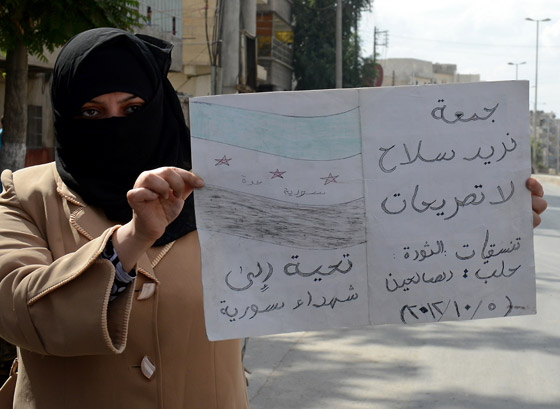 جمعة
نريد سلاح
لا تصريحات
تنسقيات الثورة:
حلب: الصالحين
(٢٠١٢/١٠/٥)
سورية حرة
تحية إلى
شهداء سورية